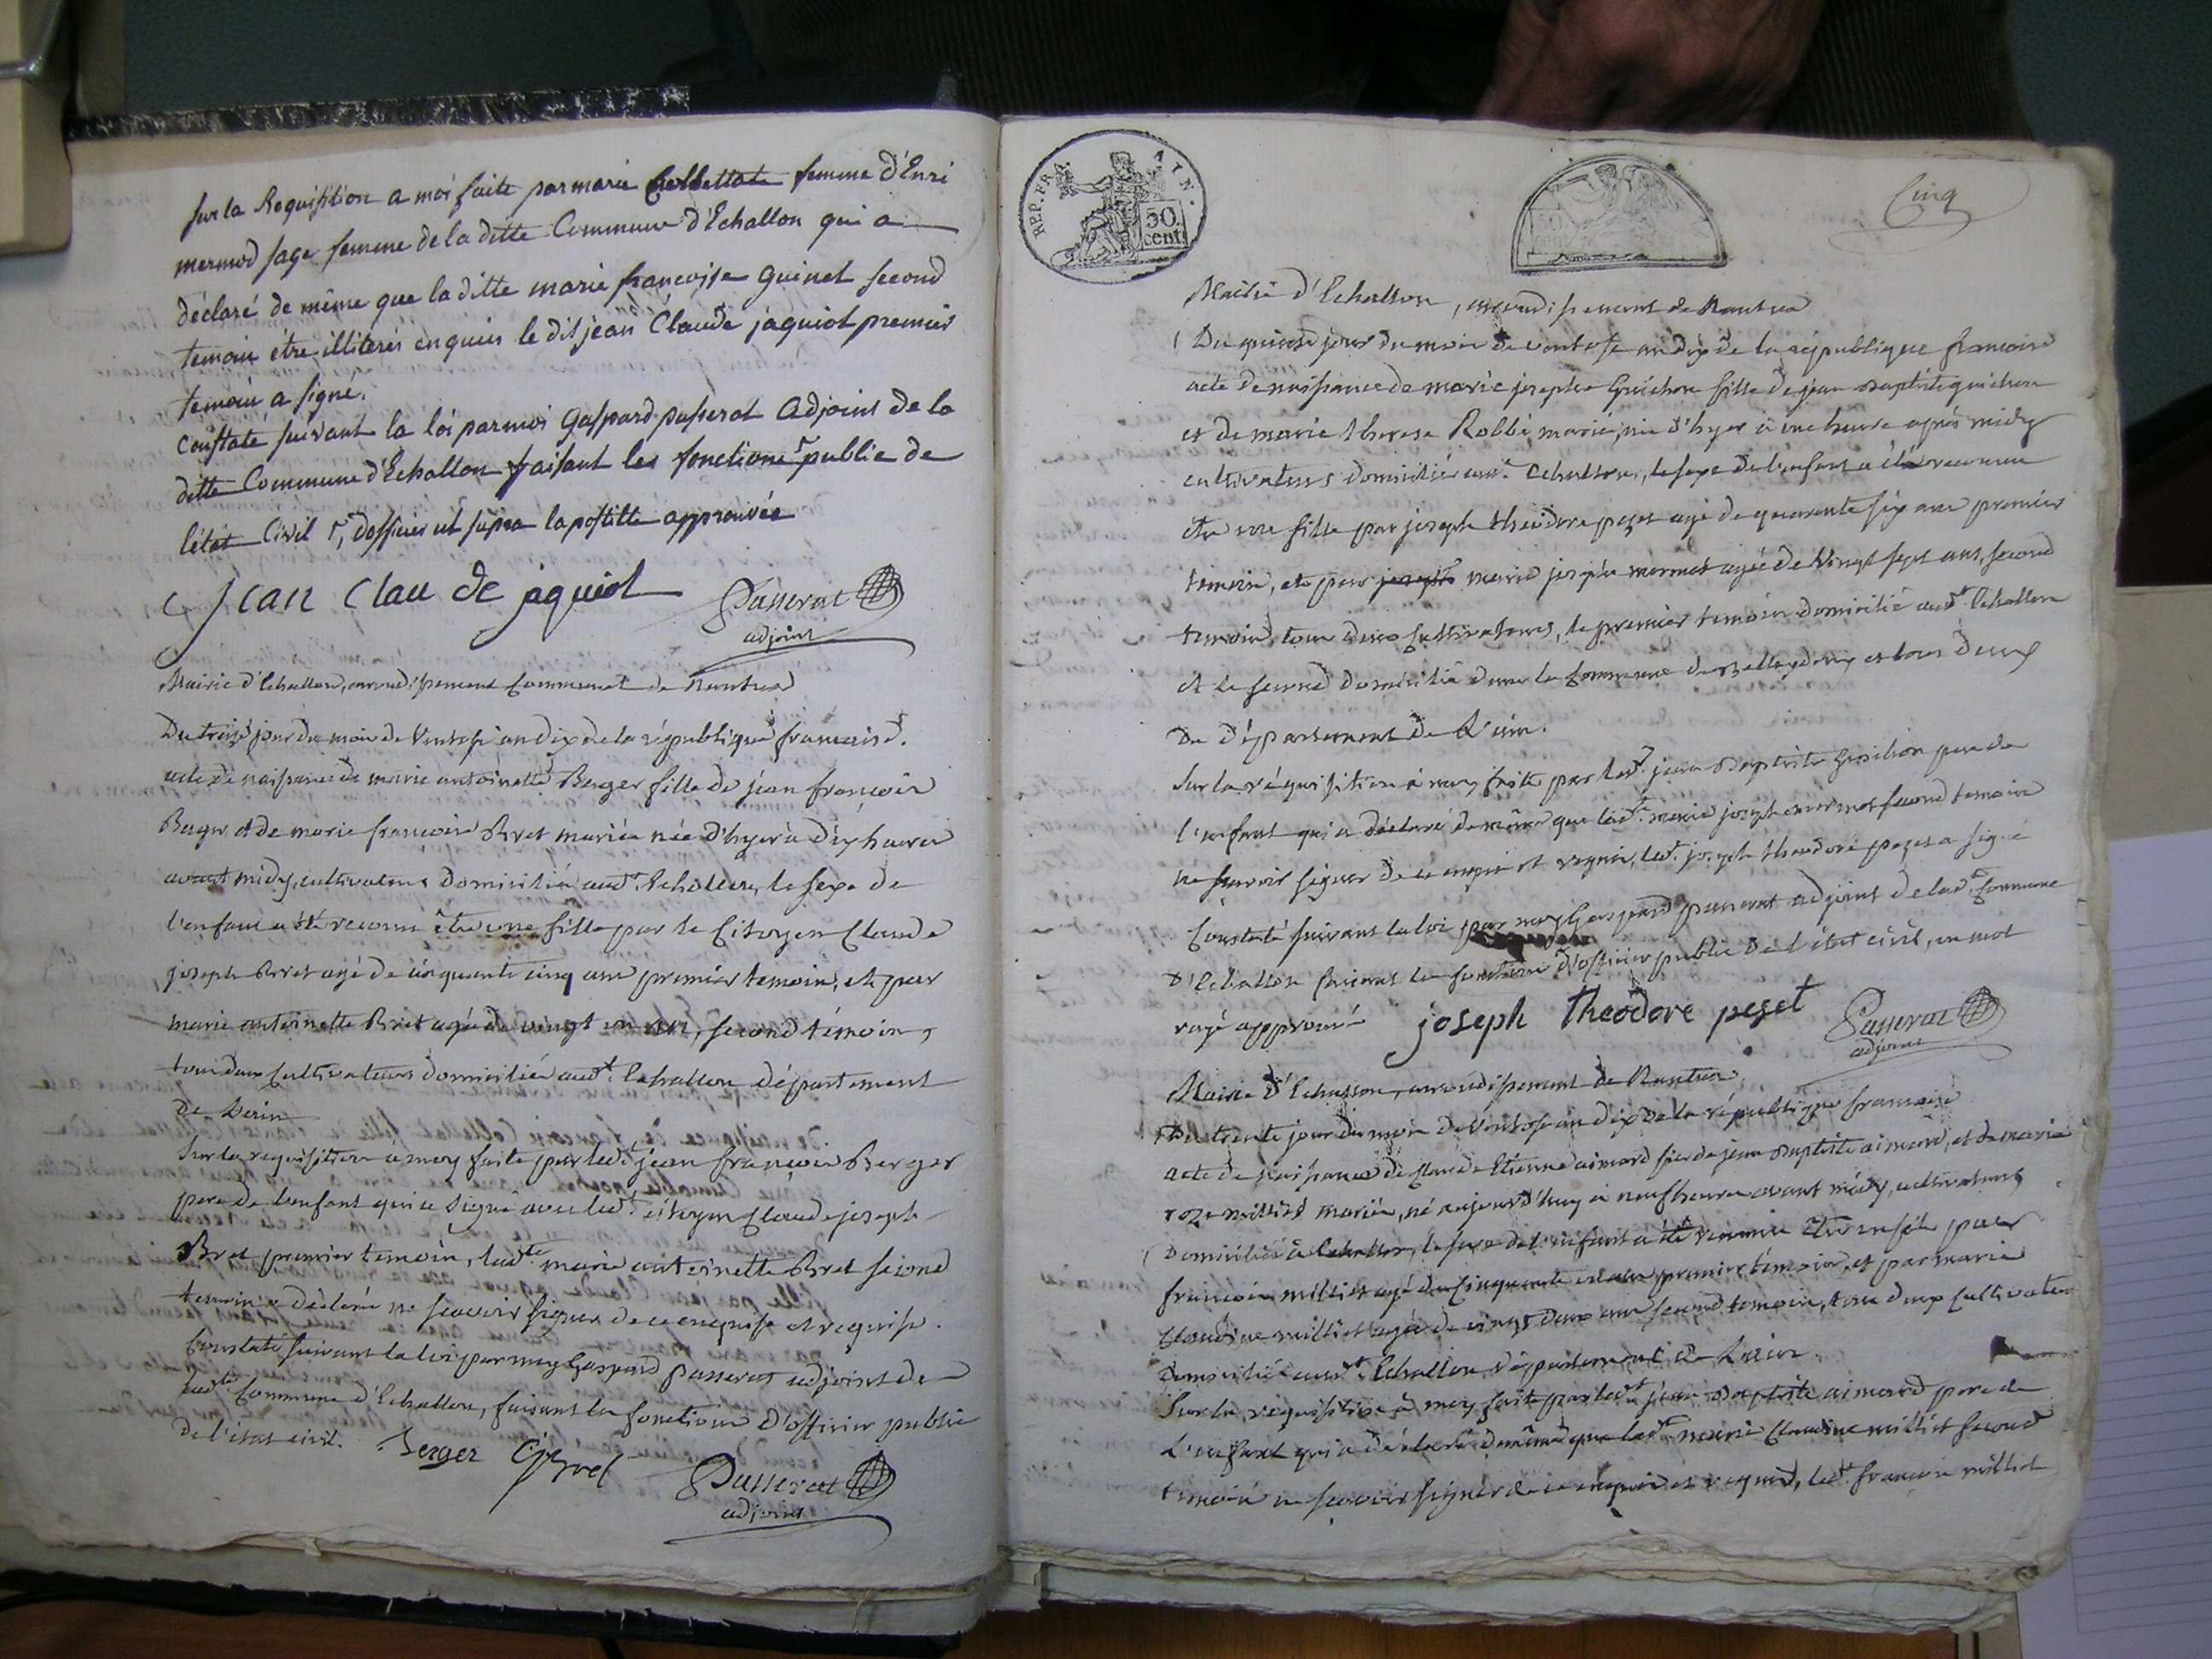 sur la Requisition a moi faite par marie Collettate femme d'Enri
mermod sage femme de la ditte Commune d'Echallon qui a
déclaré de même que la ditte marie francoise Guinet second
temoin étre illiterés enquis le dit jean Claude jaquiot premier
temoin a signé.
Constaté suivant la loi par moi Gaspard passerat Adjoint de la
ditte Commune d'Echallon faisant les fonctions publie de
l'état Civil d'officier ut supra la postille approuvée
Jean Clau de jaquiot Passerat
adjoint
Mairie d'Echallon, arrondissement Communal de Nantua
Du treize jour du mois de Ventose an dix de la république francaise.
acte de naissance de marie antoinette Berger fille de jean françois
Berger et de marie francoise Bret mariés née d'hyer à dix heures
avant midy, cultivateurs domiciliés audt. Echallon, le sexe de
l'enfant a été reconnu être une fille par le Citoyen Claude
joseph Bret agé de cinquante cinq ans premier temoin, et par
marie antoinette Bret agée de vingt un ans, second témoin,
tous deux Cultivateurs domiciliés audt. Echallon département
de Lain
Sur la requisition à moy faite par ledt. jean françois Berger
pere de l'enfant qui a signé avec ledt. citoyen Claude joseph
Bret premier temoin, ladte. marie antoinette Bret second
temoin a déclaré ne scavoir signer de ce enquise et requise.
Constaté suivant la loi par moy Gaspard passerat adjoint de
ladte. Commune d'Echallon, faisant les fonctions d'officier public
de l'état civil. Berger CjBret
Passerat
adjoint
REP. FRA. AIN.
50
cent
Cinq
Mairie d'Echallon, arrondissement de Nantua
Du quinze jour du mois de ventose an dix de la république francaise
acte de naissance de marie josephe Guichon fille de jean baptiste guichon
et de marie therese Robbé, mariés, née d'hyer à une heure après midy
cultivateurs domiciliés audt. Echallon, le sexe de l'enfant a été reconnu
etre une fille par joseph théodore peset agé de quarante six ans premier
témoin, et par joseph marie josephe mermet agée de Vingt sept ans, second
temoin, tous deux cultivateurs, le premier temoin domicilié audt. Echallon
et le second domicilié dans la Commune de Belleydoux et tous deux
du département de L'ain.
Sur la réquisition à moy faite par ledt. jean Baptiste Guichon pere de
l'enfant qui a déclaré de même que ladte. marie josephe mermet second temoin
ne scavoir signer de ce enquis et requis, ledt. joseph theodore peset a signé
Constaté suivant la loi par moy Gaspard passerat adjoint de ladte. Commune
d'Echallon faisant les fonctions d'officier public de l'état civil, un mot
rayé approuvé joseph theodore peset Passerat
adjoint
Mairie d'Echallon, arrondissement de Nantua
Du trente jour du mois de Ventose an dix de la république francaise
acte de naissance de Claude Etienne aimard fils de jean Baptiste aimard, et de marie
roze milliet mariés, né aujourd'huy à neuf heures avant midy, cultivateurs
Domiciliés à Echallon, le sexe de l'enfant a été reconnu être un fils par
françois milliet agé de Cinquante un ans premier témoin, et par marie
Claudine milliet agée de vingt deux ans second temoin, tous deux Cultivateurs
domiciliés audt. Echallon département de Lain.
Sur la requisition à moy faite par ledt. jean Baptiste aimard pere de
L'enfant qui a déclaré de même que ladte. marie Claudine milliet second
temoin ne scavoir signer de ce enquis et requis, ledt. françois milliet